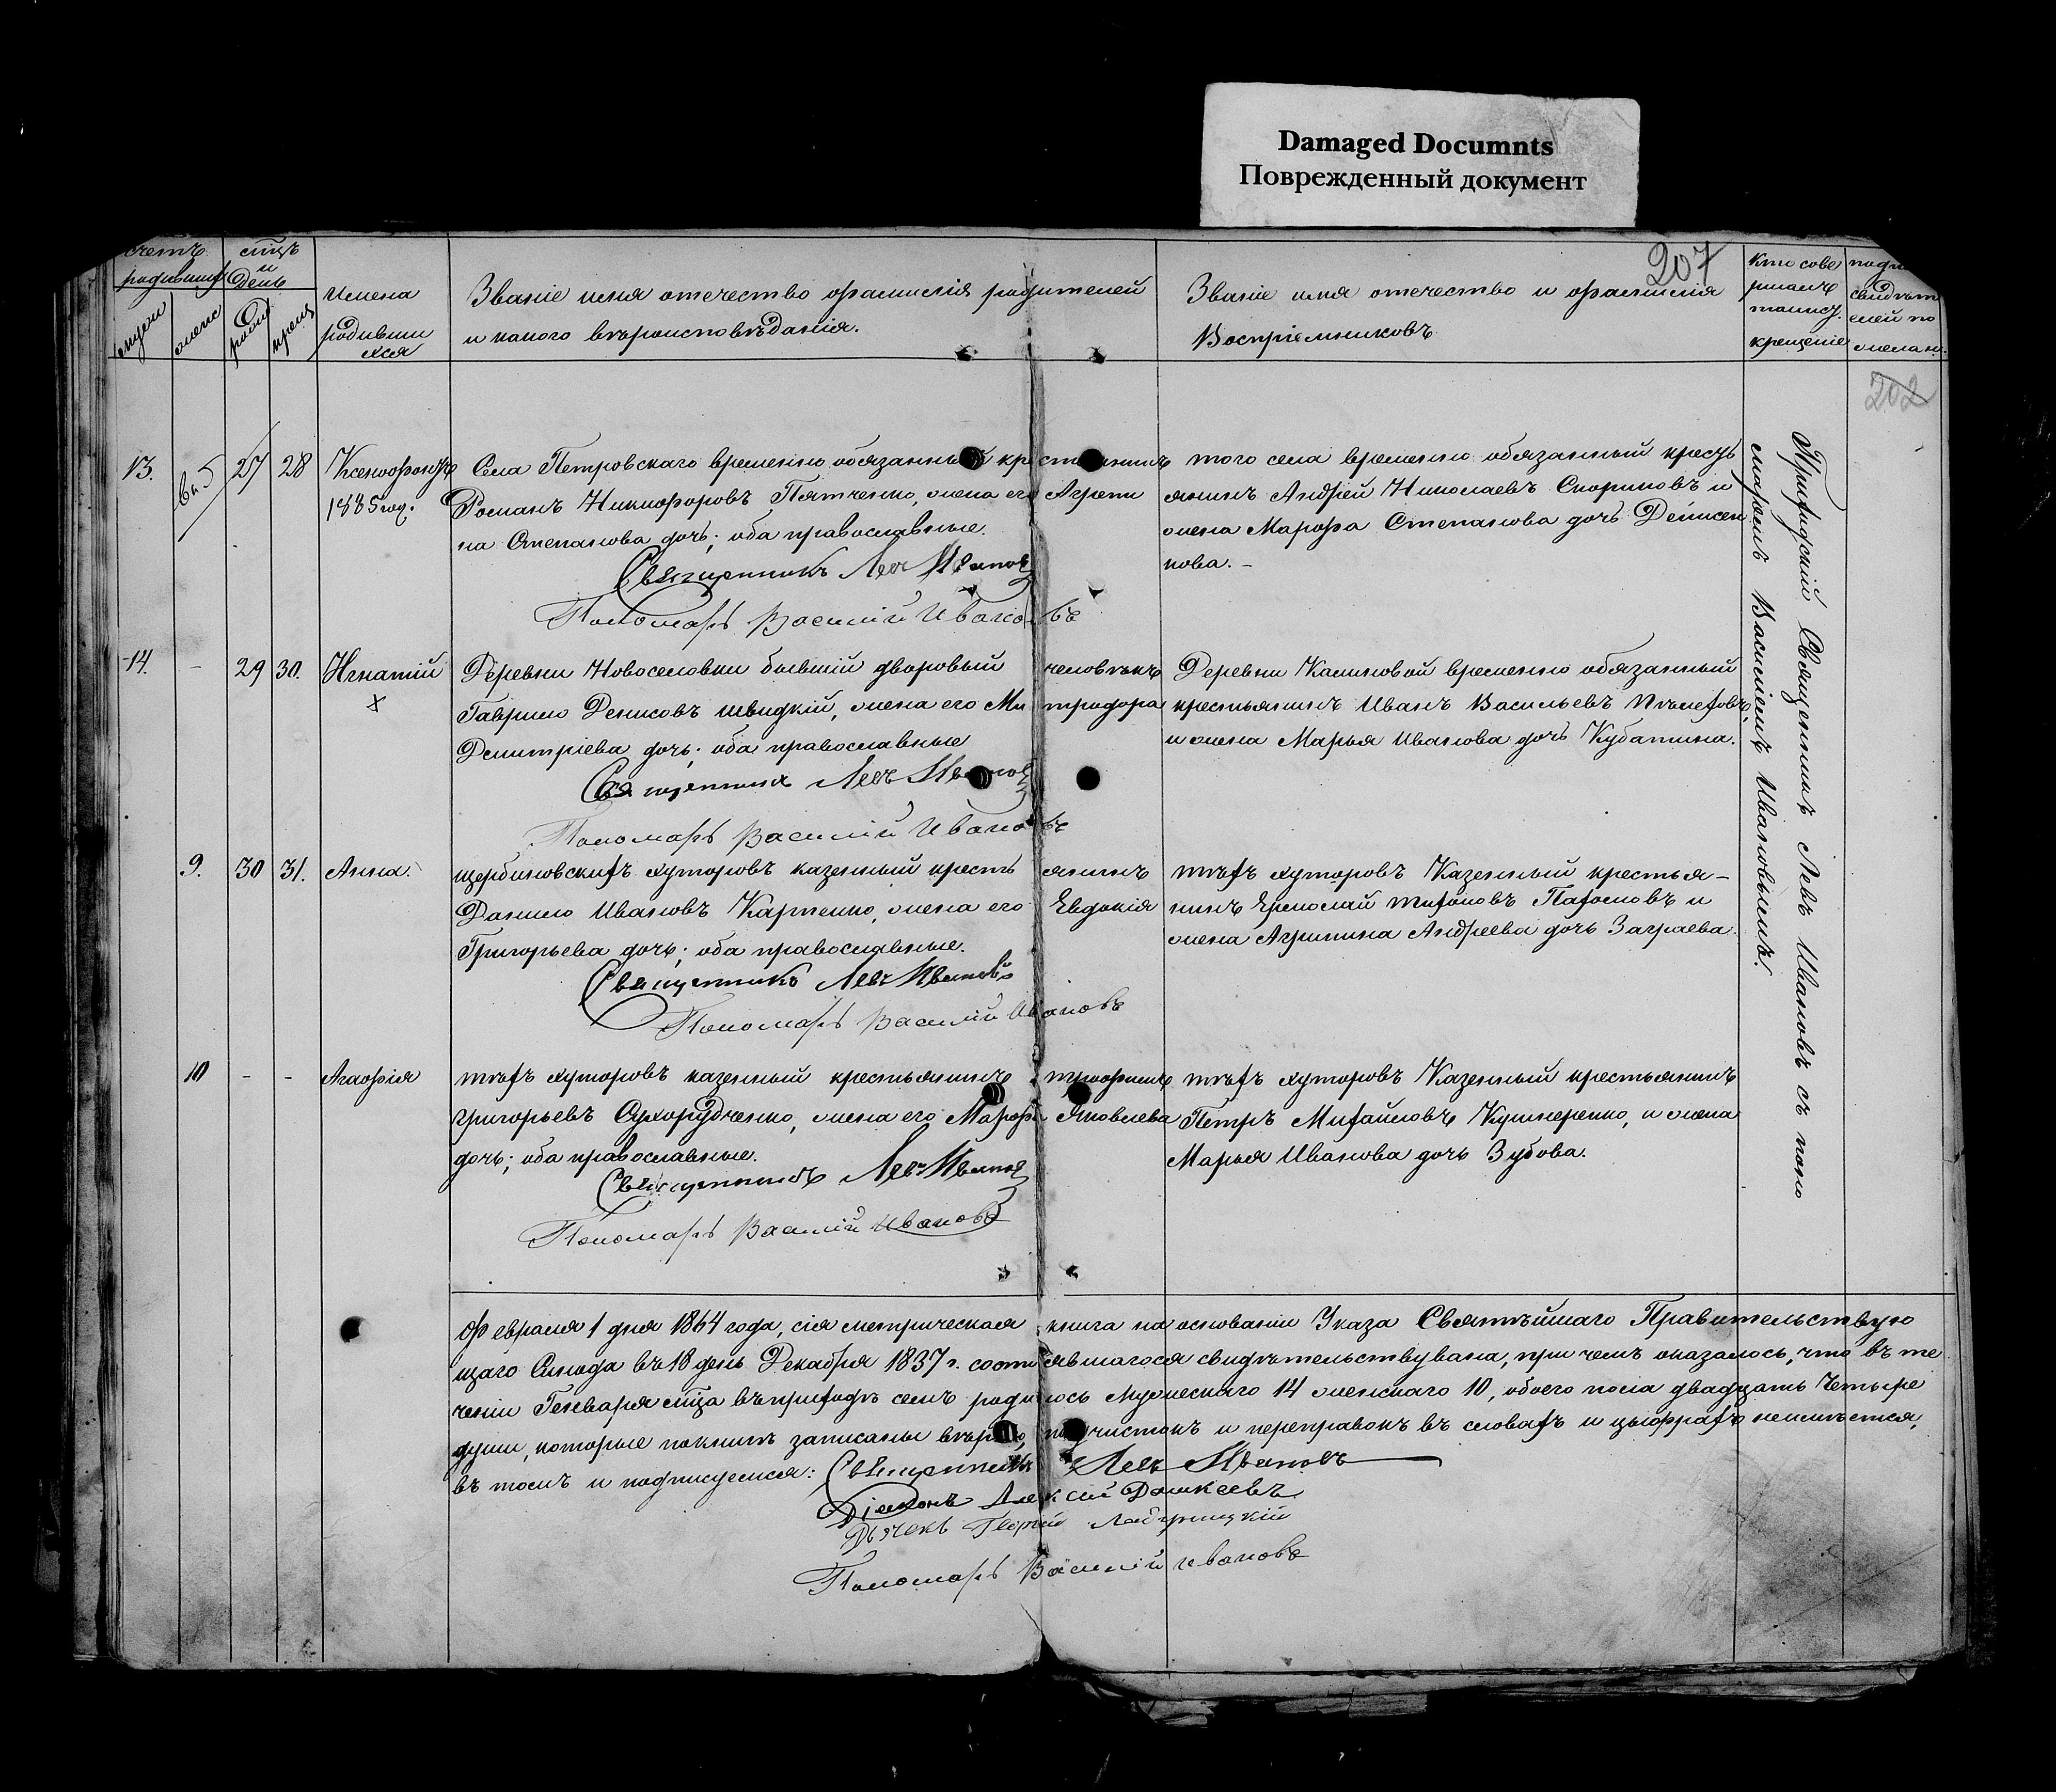 Damaged Documnts
Поврежденный документ
207
счетъ родивших
мцъ и день
мужеск
женс
рожд
крещ
Имена родивши хся
Званіе имя отечество фамилія родителей
и какого вѣроисповѣданія.
Званіе имя отечество и фамилія
Воспріемниковъ
Кто сове
ршалъ
таинст.
крещеніе
свидѣт
елей по
желан.
202
13. 27 28 Ксенофонтъ Села Петровскаго временно обязанный крестьянинъ того села временно обязанный кресть
1885 год. Романъ Никифоровъ Пятченко, жена его Агрепи янинъ Андрей Николаевъ Скориковъ и
на Степанова дочь; оба православные. жена Марфа Степанова дочь Денисен
кова. -
Священникъ Левъ Ивановъ
Пономарь Василій Ивановъ
14. - 29 30. Игнатій Деревни Новоселовки бывшій дворовый человѣкъ Деревни Калиновой временно обязанный
х Гаврило Денисовъ швидкій, жена его Ми тродора крестьянинъ Иванъ Васильевъ
Дмитріева дочь; оба православные и жена Марья Иванова дочь Кубатина.
Священникъ Левъ Ивановъ
Пономарь Василій Ивановъ
9. 30 31. Анна. щербиновскихъ хуторовъ казенный кресть янинъ тѣхъ хуторовъ Казенный крестья-
Данило Ивановъ Карпенко, жена его Евдокія нинъ Ермолай тихоновъ Пахомовъ и
Григорьева дочь; оба православные. жена Агрипина Андреева дочь Заграева
Священникъ Левъ Ивановъ
Пономарь Василій Ивановъ
10 - - Агафія тѣхъ хуторовъ казенный крестьянинъ трофимъ тѣхъ хуторовъ Казенный крестьянинъ
григорьевъ Сухорудченко, жена его Марфа Яковлева Петръ Михайловъ Кушнеренко, и жена
дочь; оба православные. Марья Иванова дочь Зубова.
Священникъ Левъ Ивановъ
Пономарь Василій Ивановъ
Приходскій Священникъ Левъ Ивановъ съ поно
маремъ Василіемъ Ивановымъ.
февраля 1 дня 1864 года, сія метрическая книга на основаніи Указа Святѣйшаго Правительствую
щаго Синода въ 18 день Декабря 1837 г. состоявшагося свидѣтельствувана, при чемъ оказалось, что въ те
ченіи Генваря мца въ приходѣ семъ родилось мужескаго 14 женскаго 10, обоего пола двадцать четыре
души, которые по книгѣ записаны вѣрно, подчистокъ и переправокъ въ словахъ и цыфрахъ неимѣется,
въ томъ и подписуемся: Священникъ Левъ Ивановъ
Діаконъ Алексій Дашкеевъ
Дьячекъ Георгій
Пономарь Василій Ивановъ